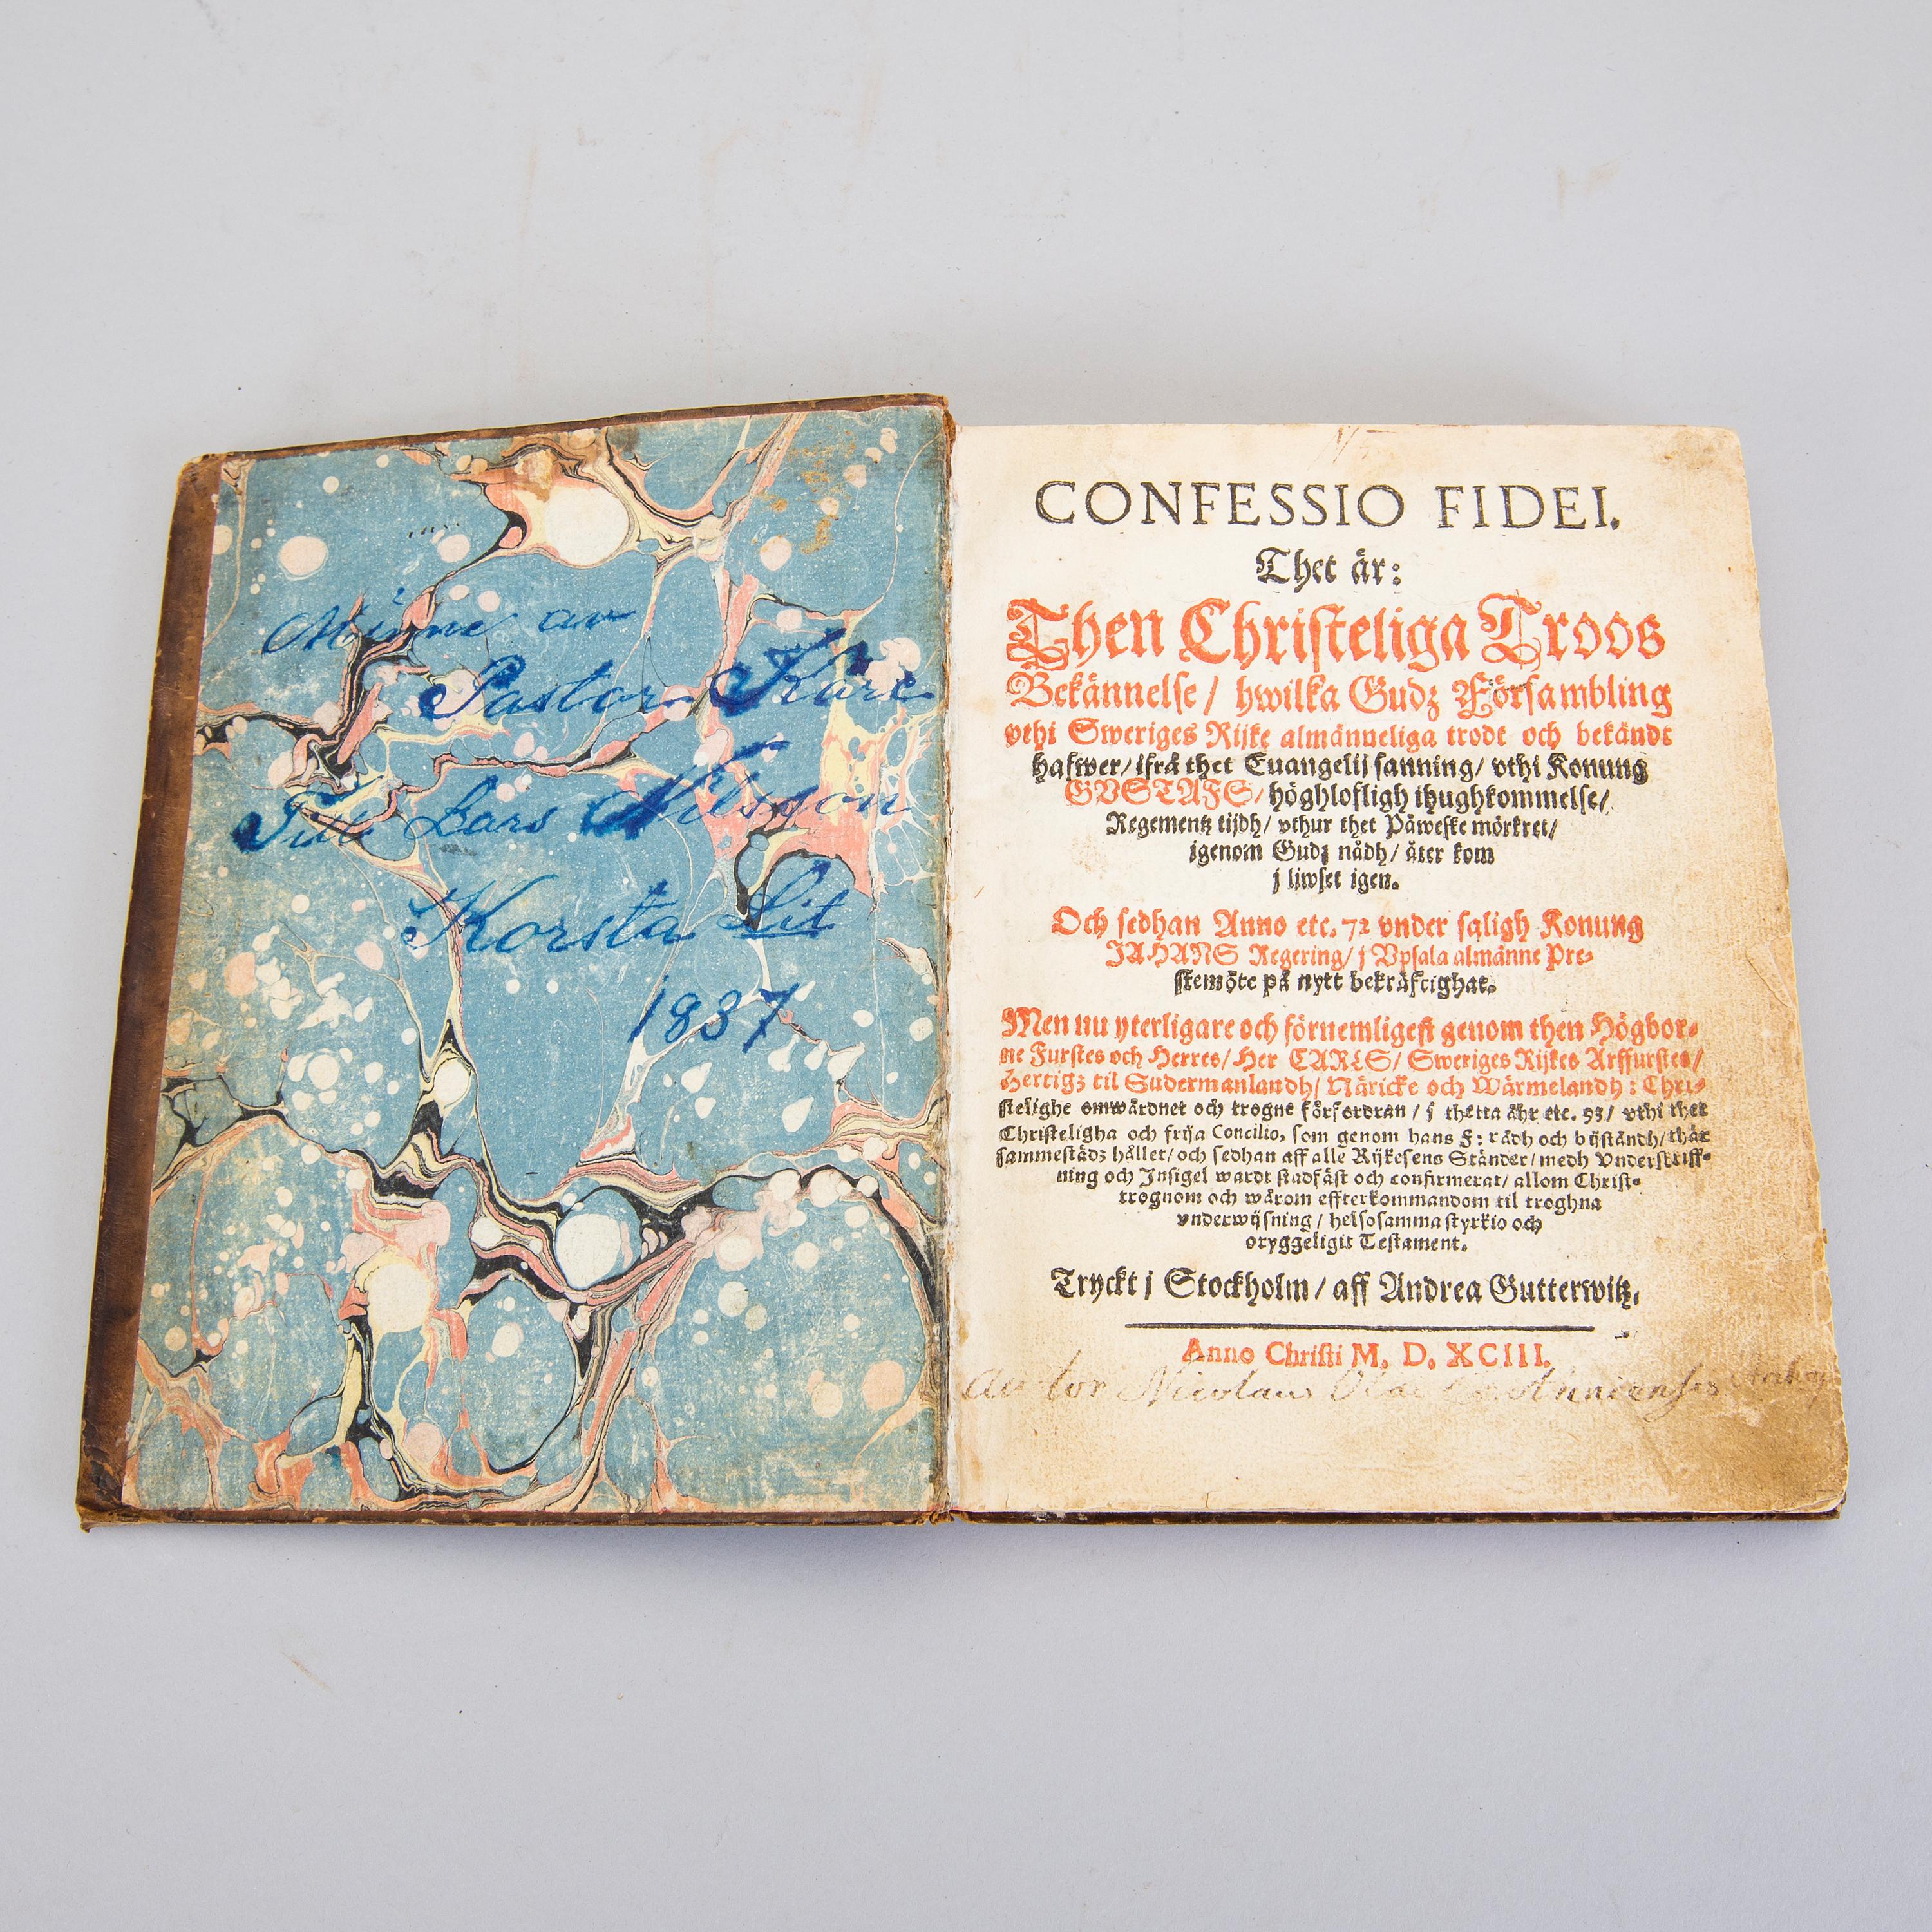 Minne av
Pastor Kåre
Till Lars Nilsson
Korsta Lit
1887
CONFESSIO FIDEI.
Thet är:
Then Christeliga Troos
Bekännelse / hwilka Gudz Försambling
vthi Sweriges Rijke almänneliga trodt och bekändt
hafwer / ifrå thet Euangelij sanning / vthi Konung
GVSTAFS / höghlofligh ihughkommelse /
Regementz tijdh / vthur thet Påweske mörkret /
igenom Gudz nådh / åter kom
j liwset igen.
Och sedhan Anno etc. 72 vnder saligh Konung
JAHANS Regering / j Vpsala almänne Pre-
stemöte på nytt bekräftighat.
Men nu yterligare och förnemligest genom then Högbor-
ne Furstes och Herres / Her CARLS / Sweriges Rijkes Arffurstes /
Hertigz til Sudermanlandh / Näricke och Wärmelandh: Chri-
stelighe omwårdnet och trogne förfordran / j thetta åhr etc. 93 / vthi thet
Christeligha och frija Concilio, som genom hans F: rådh och bijståndh / thär
sammestädz hållet / och sedhan aff alle Rijkesens Ständer / medh Vnderskriff-
ning och Insigel wardt stadfäst och confirmerat / allom Christ-
trognom och wårom effterkommandom til troghna
vnderwijsning / helsosamma styrkio och
oryggeligit Testament.
Tryckt j Stockholm / aff Andrea Gutterwitz.
Anno Christi M. D. XCIII.
Autor Nicolaus Olai